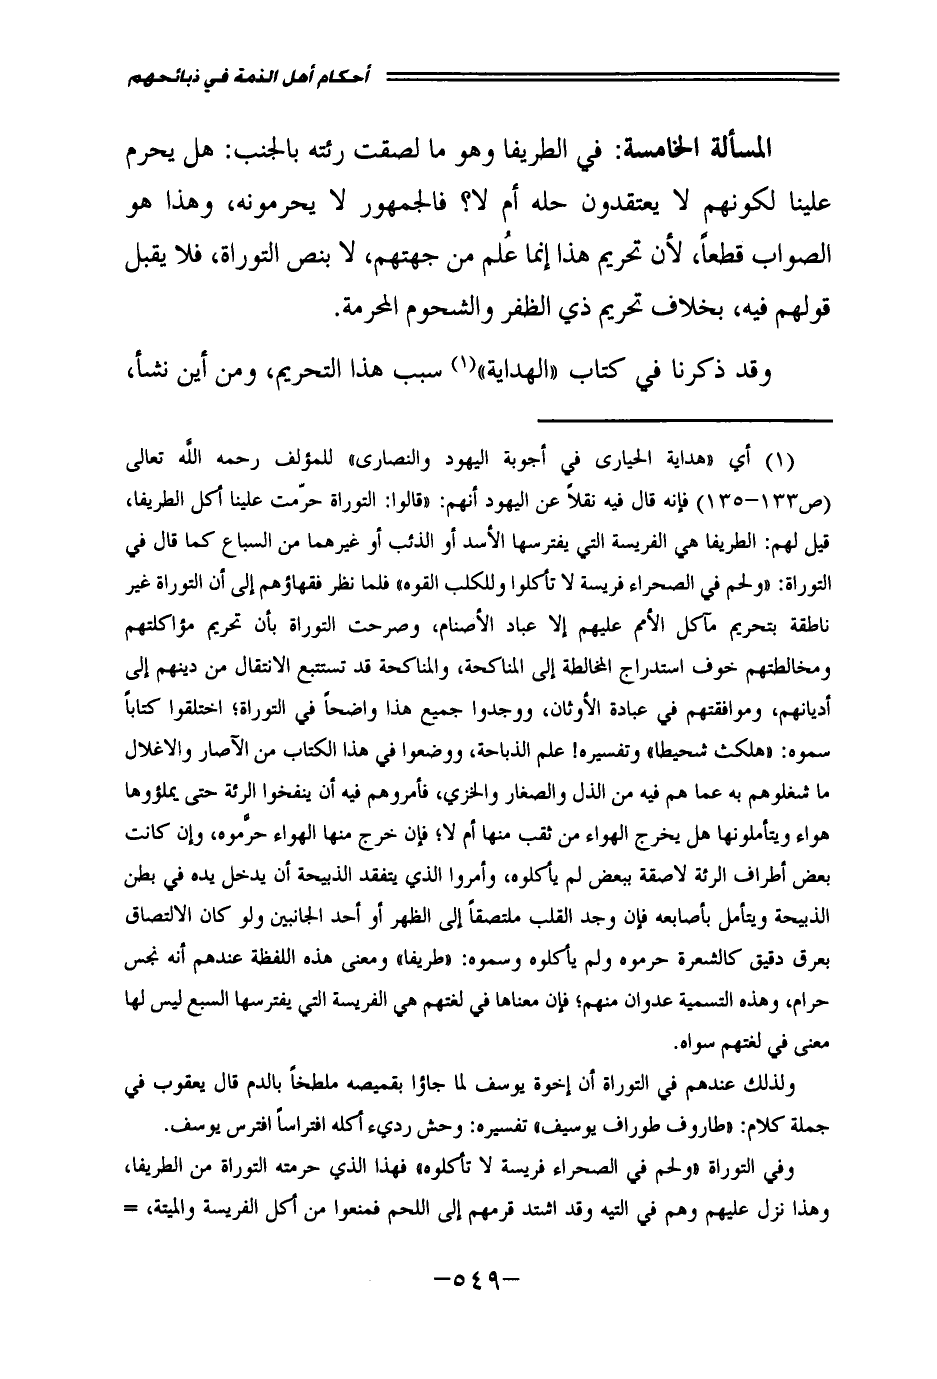 أحكام أهل الذمة في ذبائحهم
المسألة الخامسة: في الطريفا وهو ما لصقت رئته بالجنب: هل يحرم
علينا لكونهم لا يعتقدون حله أم لا؟ فالجمهور لا يحرمونه، وهذا هو
الصواب قطعاً، لأن تحريم هذا إنما عُلم من جهتهم، لا بنص التوراة، فلا يقبل
قولهم فيه، بخلاف تحريم ذي الظفر والشحوم المحرمة.
وقد ذكرنا في كتاب «الهداية»(١) سبب هذا التحريم، ومن أين نشأ،
(١) أي «هداية الحيارى في أجوبة اليهود والنصارى» للمؤلف رحمه اللَّه تعالى
(ص١٣٣-١٣٥) فإنه قال فيه نقلاً عن اليهود أنهم: «قالوا: التوراة حرّمت علينا أكل الطريفا،
قيل لهم: الطريفا هي الفريسة التي يفترسها الأسد أو الذئب أو غيرهما من السباع كما قال في
التوراة: «ولحم في الصحراء فريسة لا تأكلوا وللكلب القوه» فلما نظر فقهاؤهم إلى أن التوراة غير
ناطقة بتحريم مآكل الأمم عليهم إلا عباد الأصنام، وصرحت التوراة بأن تحريم مؤاكلتهم
ومخالطتهم خوف استدراج المخالطة إلى المناكحة، والمناكحة قد تستتبع الانتقال من دينهم إلى
أديانهم، وموافقتهم في عبادة الأوثان، ووجدوا جميع هذا واضحاً في التوراة؛ اختلقوا كتاباً
سموه: «هلكث شحيطا» وتفسيره! علم الذباحة، ووضعوا في هذا الكتاب من الآصار والاغلال
ما شغلوهم به عما هم فيه من الذل والصغار والخزي، فأمروهم فيه أن ينفخوا الرئة حتى يملؤوها
هواء ويتأملونها هل يخرج الهواء من ثقب منها أم لا؛ فإن خرج منها الهواء حرَّموه، وإن كانت
بعض أطراف الرئة لاصقة ببعض لم يأكلوه، وأمروا الذي يتفقد الذبيحة أن يدخل يده في بطن
الذبيحة ويتأمل بأصابعه فإن وجد القلب ملتصقاً إلى الظهر أو أحد الجانبين ولو كان الالتصاق
بعرق دقيق كالشعرة حرموه ولم يأكلوه وسموه: «طريفا» ومعنى هذه اللفظة عندهم أنه نجس
حرام، وهذه التسمية عدوان منهم؛ فإن معناها في لغتهم هي الفريسة التي يفترسها السبع ليس لها
معنى في لغتهم سواه.
ولذلك عندهم في التوراة أن إخوة يوسف لما جاؤا بقميصه ملطخاً بالدم قال يعقوب في
جملة كلام: «طاروف طوراف يوسيف» تفسيره: وحش رديء أكله افتراساً افترس يوسف.
وفي التوراة «ولحم في الصحراء فريسة لا تأكلوه» فهذا الذي حرمته التوراة من الطريفا،
وهذا نزل عليهم وهم في التيه وقد اشتد قرمهم إلى اللحم فمنعوا من أكل الفريسة والميتة، =
-٥٤٩-